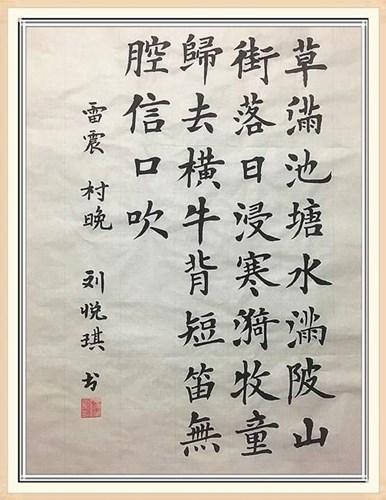 草滿池塘水滿陂山
街落日浸寒漪牧童
歸去横牛背短笛無
腔信口吹
雷震 村晚 刘悦琪 书